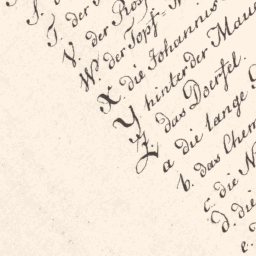 S. d
T. der
V. der Ros
W. der Topf=
X. die Johannis
Y hinter der Mau
Z das Doerfel.
a die lange
b. das Chem
c. die N
d. die
e.